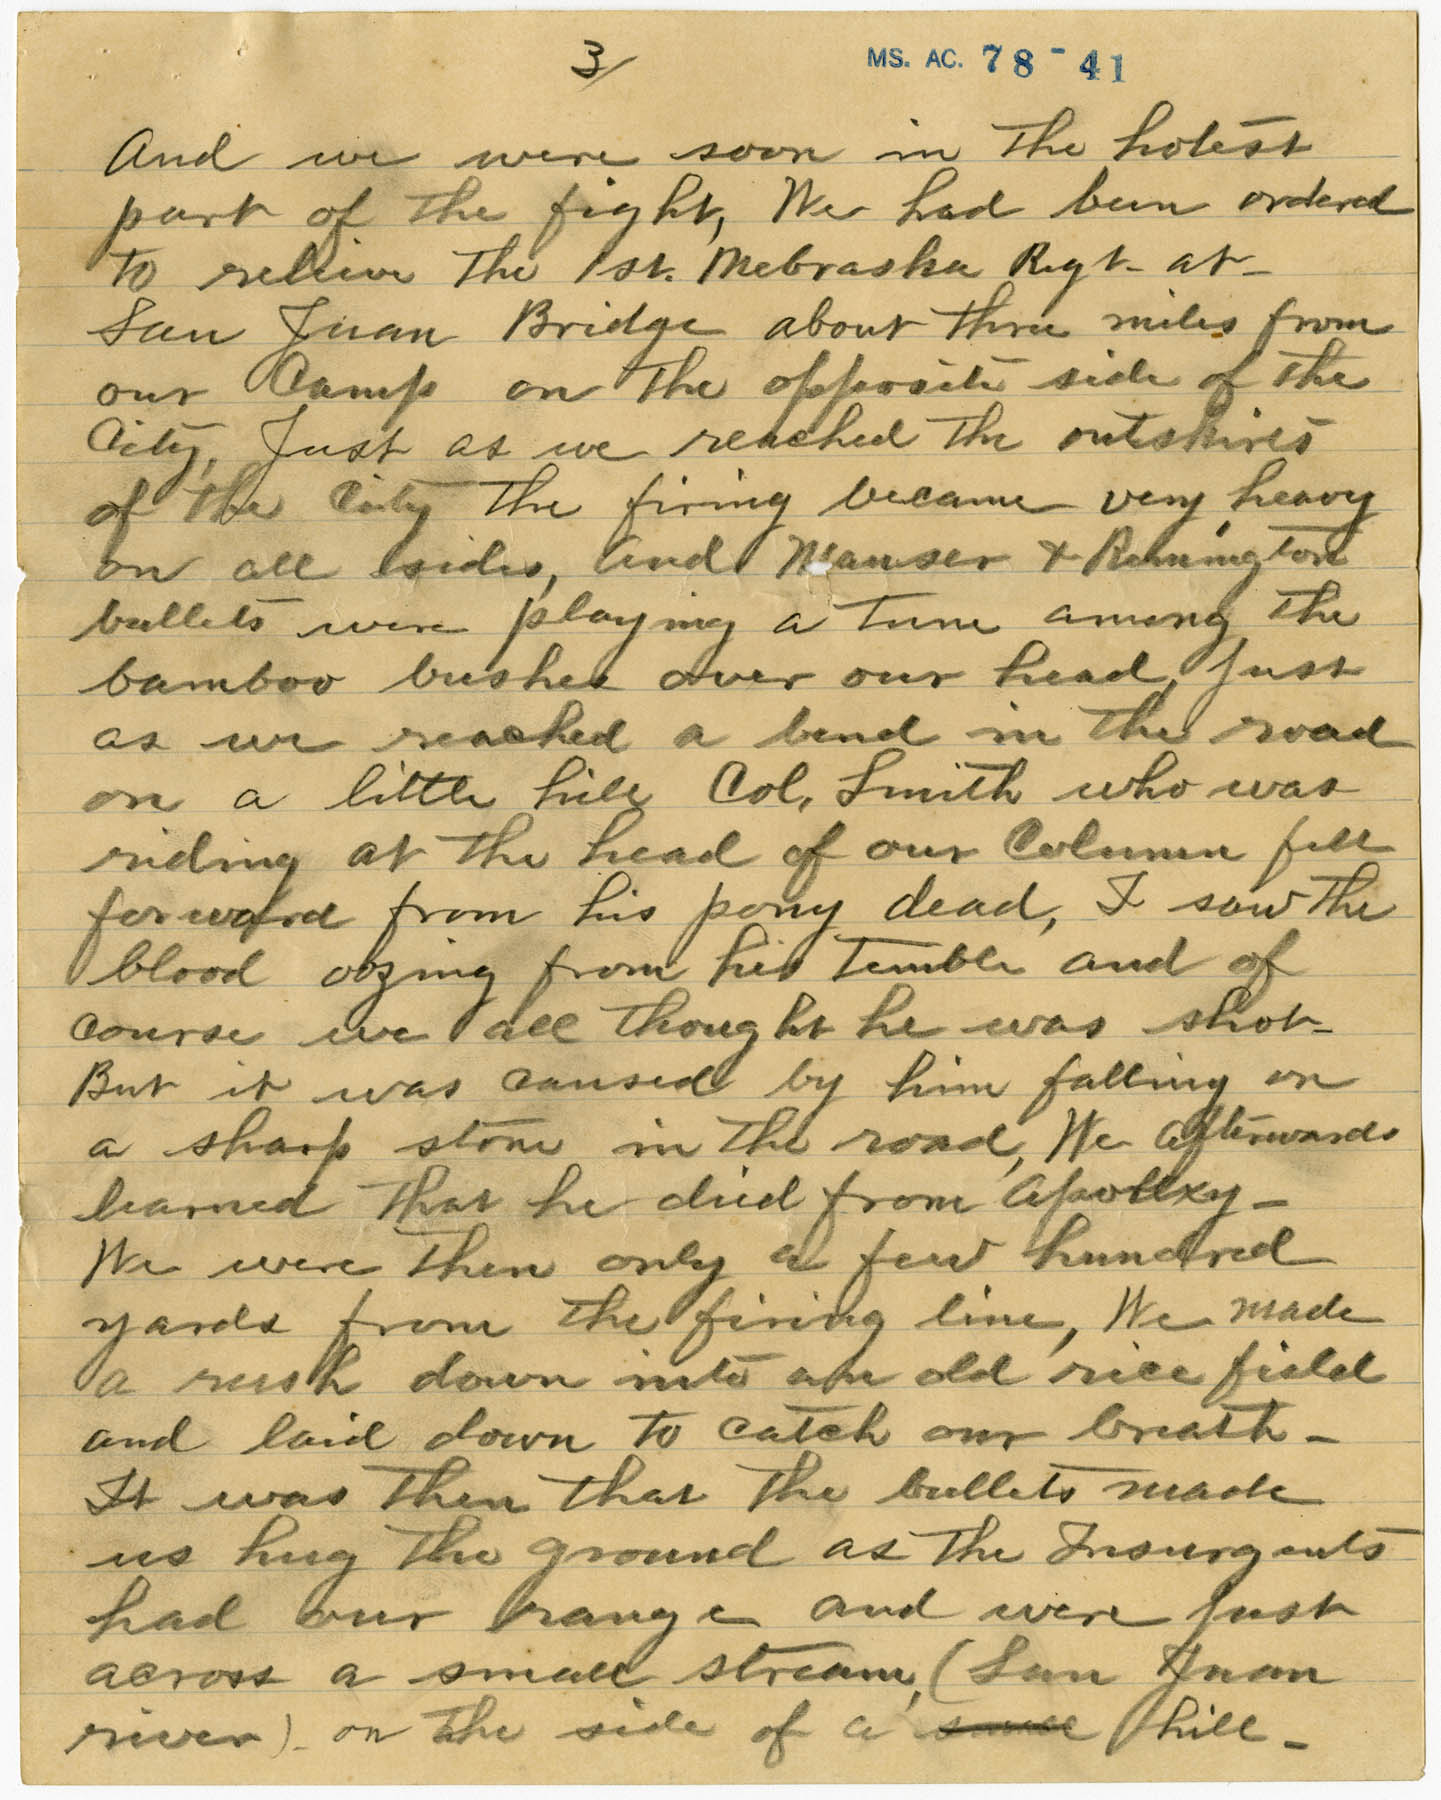 3/
MS. AC. 78-41
And we were soon in the hotest
part of the fight, We had been ordered
to relieve the 1st. Nebraska Regt- at-
San Juan Bridge about three miles from
our Camp on the opposite side of the
City, Just as we reached the outskirts
of the City the firing became very heavy
on all sides, And Mauser & Remington
bullets were playing a tune among the
bamboo bushes over our head, Just
as we reached a bend in the road
on a little hill Col. Smith who was
riding at the head of our Column fell
forward from his pony dead, I saw the
blood oozing from his temble and of
course we all thought he was shot-
But it was caused by him falling on
a sharp stone in the road, We afterwards
learned that he died from Apollxy-
We were then only a few hundred
yards from the firing line, We made
a rush down into an old rice field
and laid down to catch our breath-
It was then that the bullets made
us hug the ground as the Insurgents
had our range and were just
across a small stream, (San Juan
river)- on the side of a small hill-